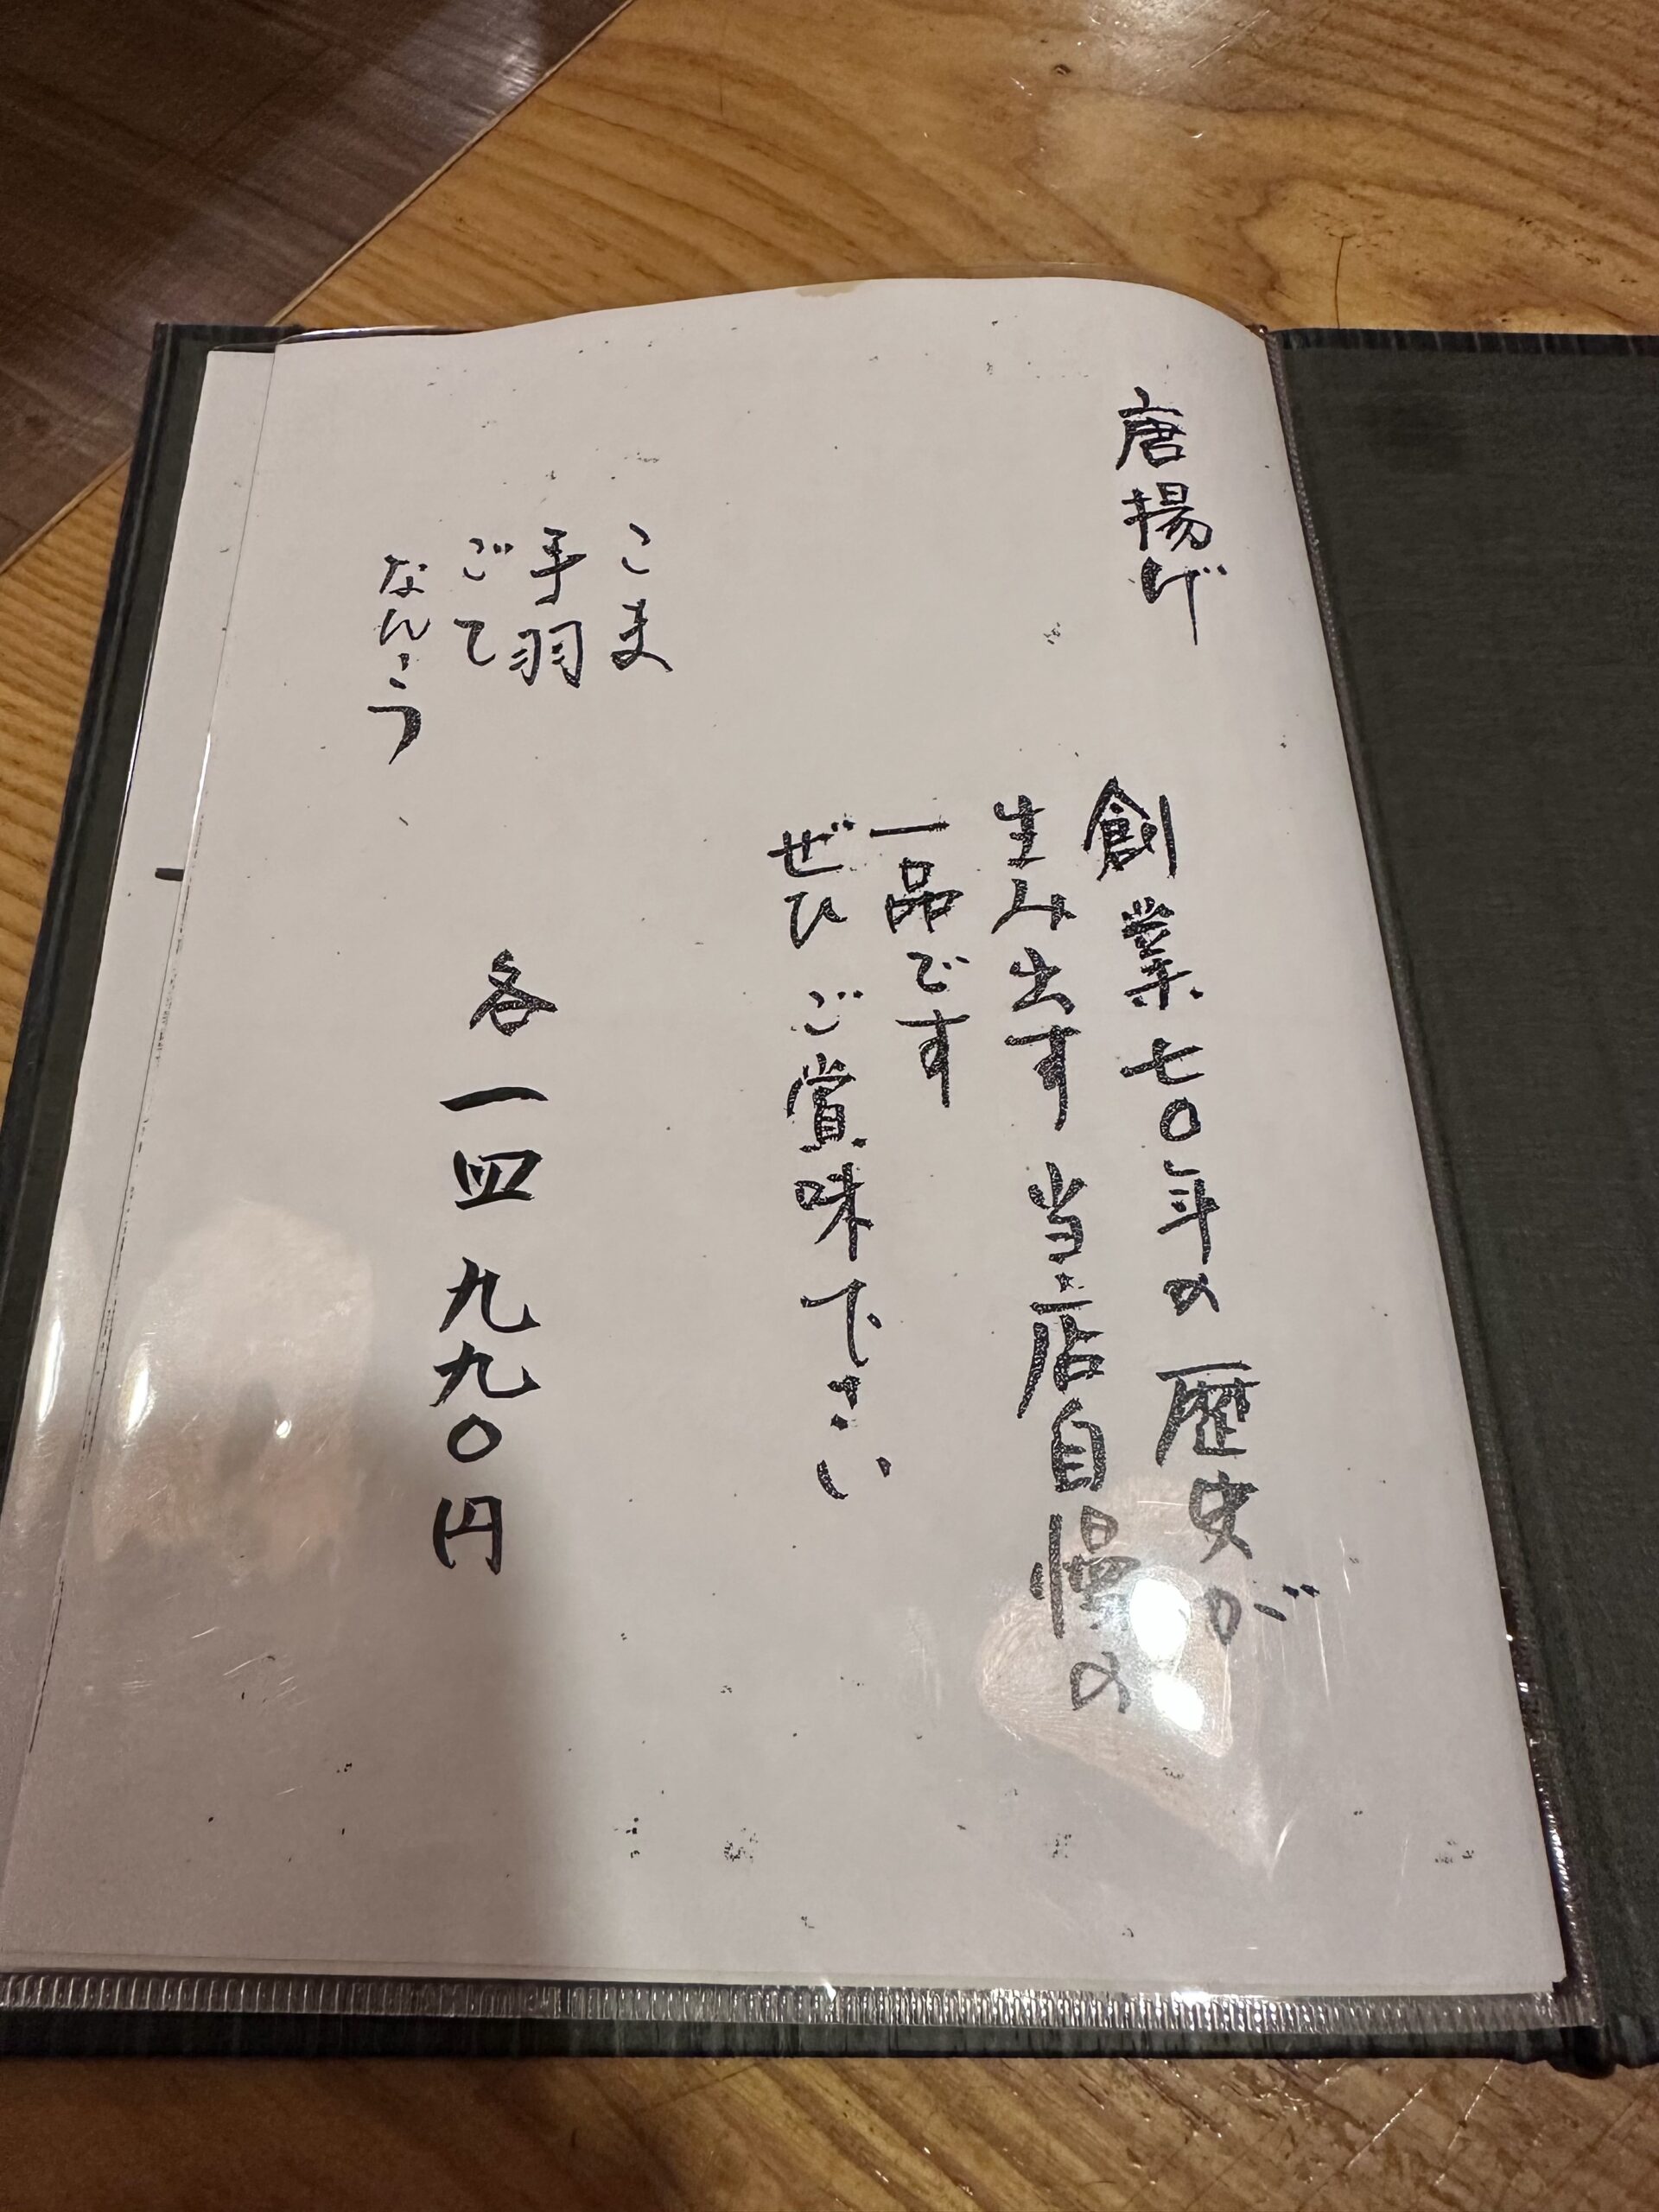 唐揚げ
創業七〇年の歴史が
生み出す当店自慢の
一品です
ぜひご賞味下さい
こま
手羽
ごて
なんこう
各一皿九九〇円